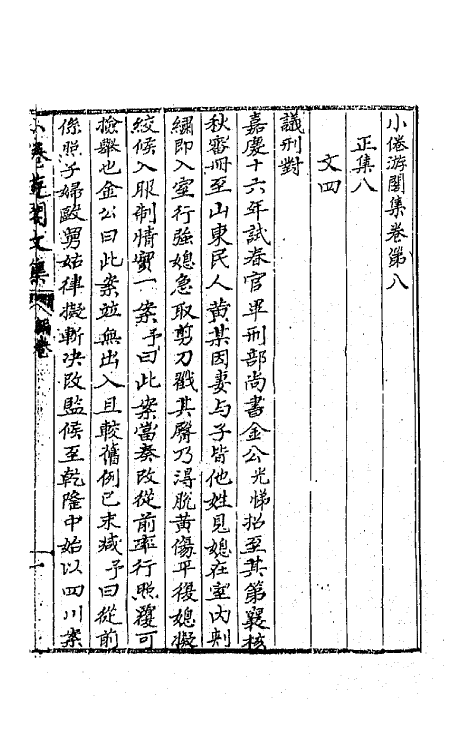 小倦游閣集卷第八
正集八
文四
議刑對
嘉慶十六年試春官畢刑部尚書金公光悌招至其第襄核
秋審冊至山東民人黃某因妻与子皆他姓見媳在室内刺
繡即入室行強媳急取剪刀戳其脣乃得脫黃傷平復媳擬
絞候入服制情實一案予曰此案當奏改從前率行照覆可
檢舉也金公曰此案並無出入且較舊例已末減予曰從前
係照子婦毆舅姑律擬斬决改監候至乾隆中始以四川案
小倦游閣文集
卷
一